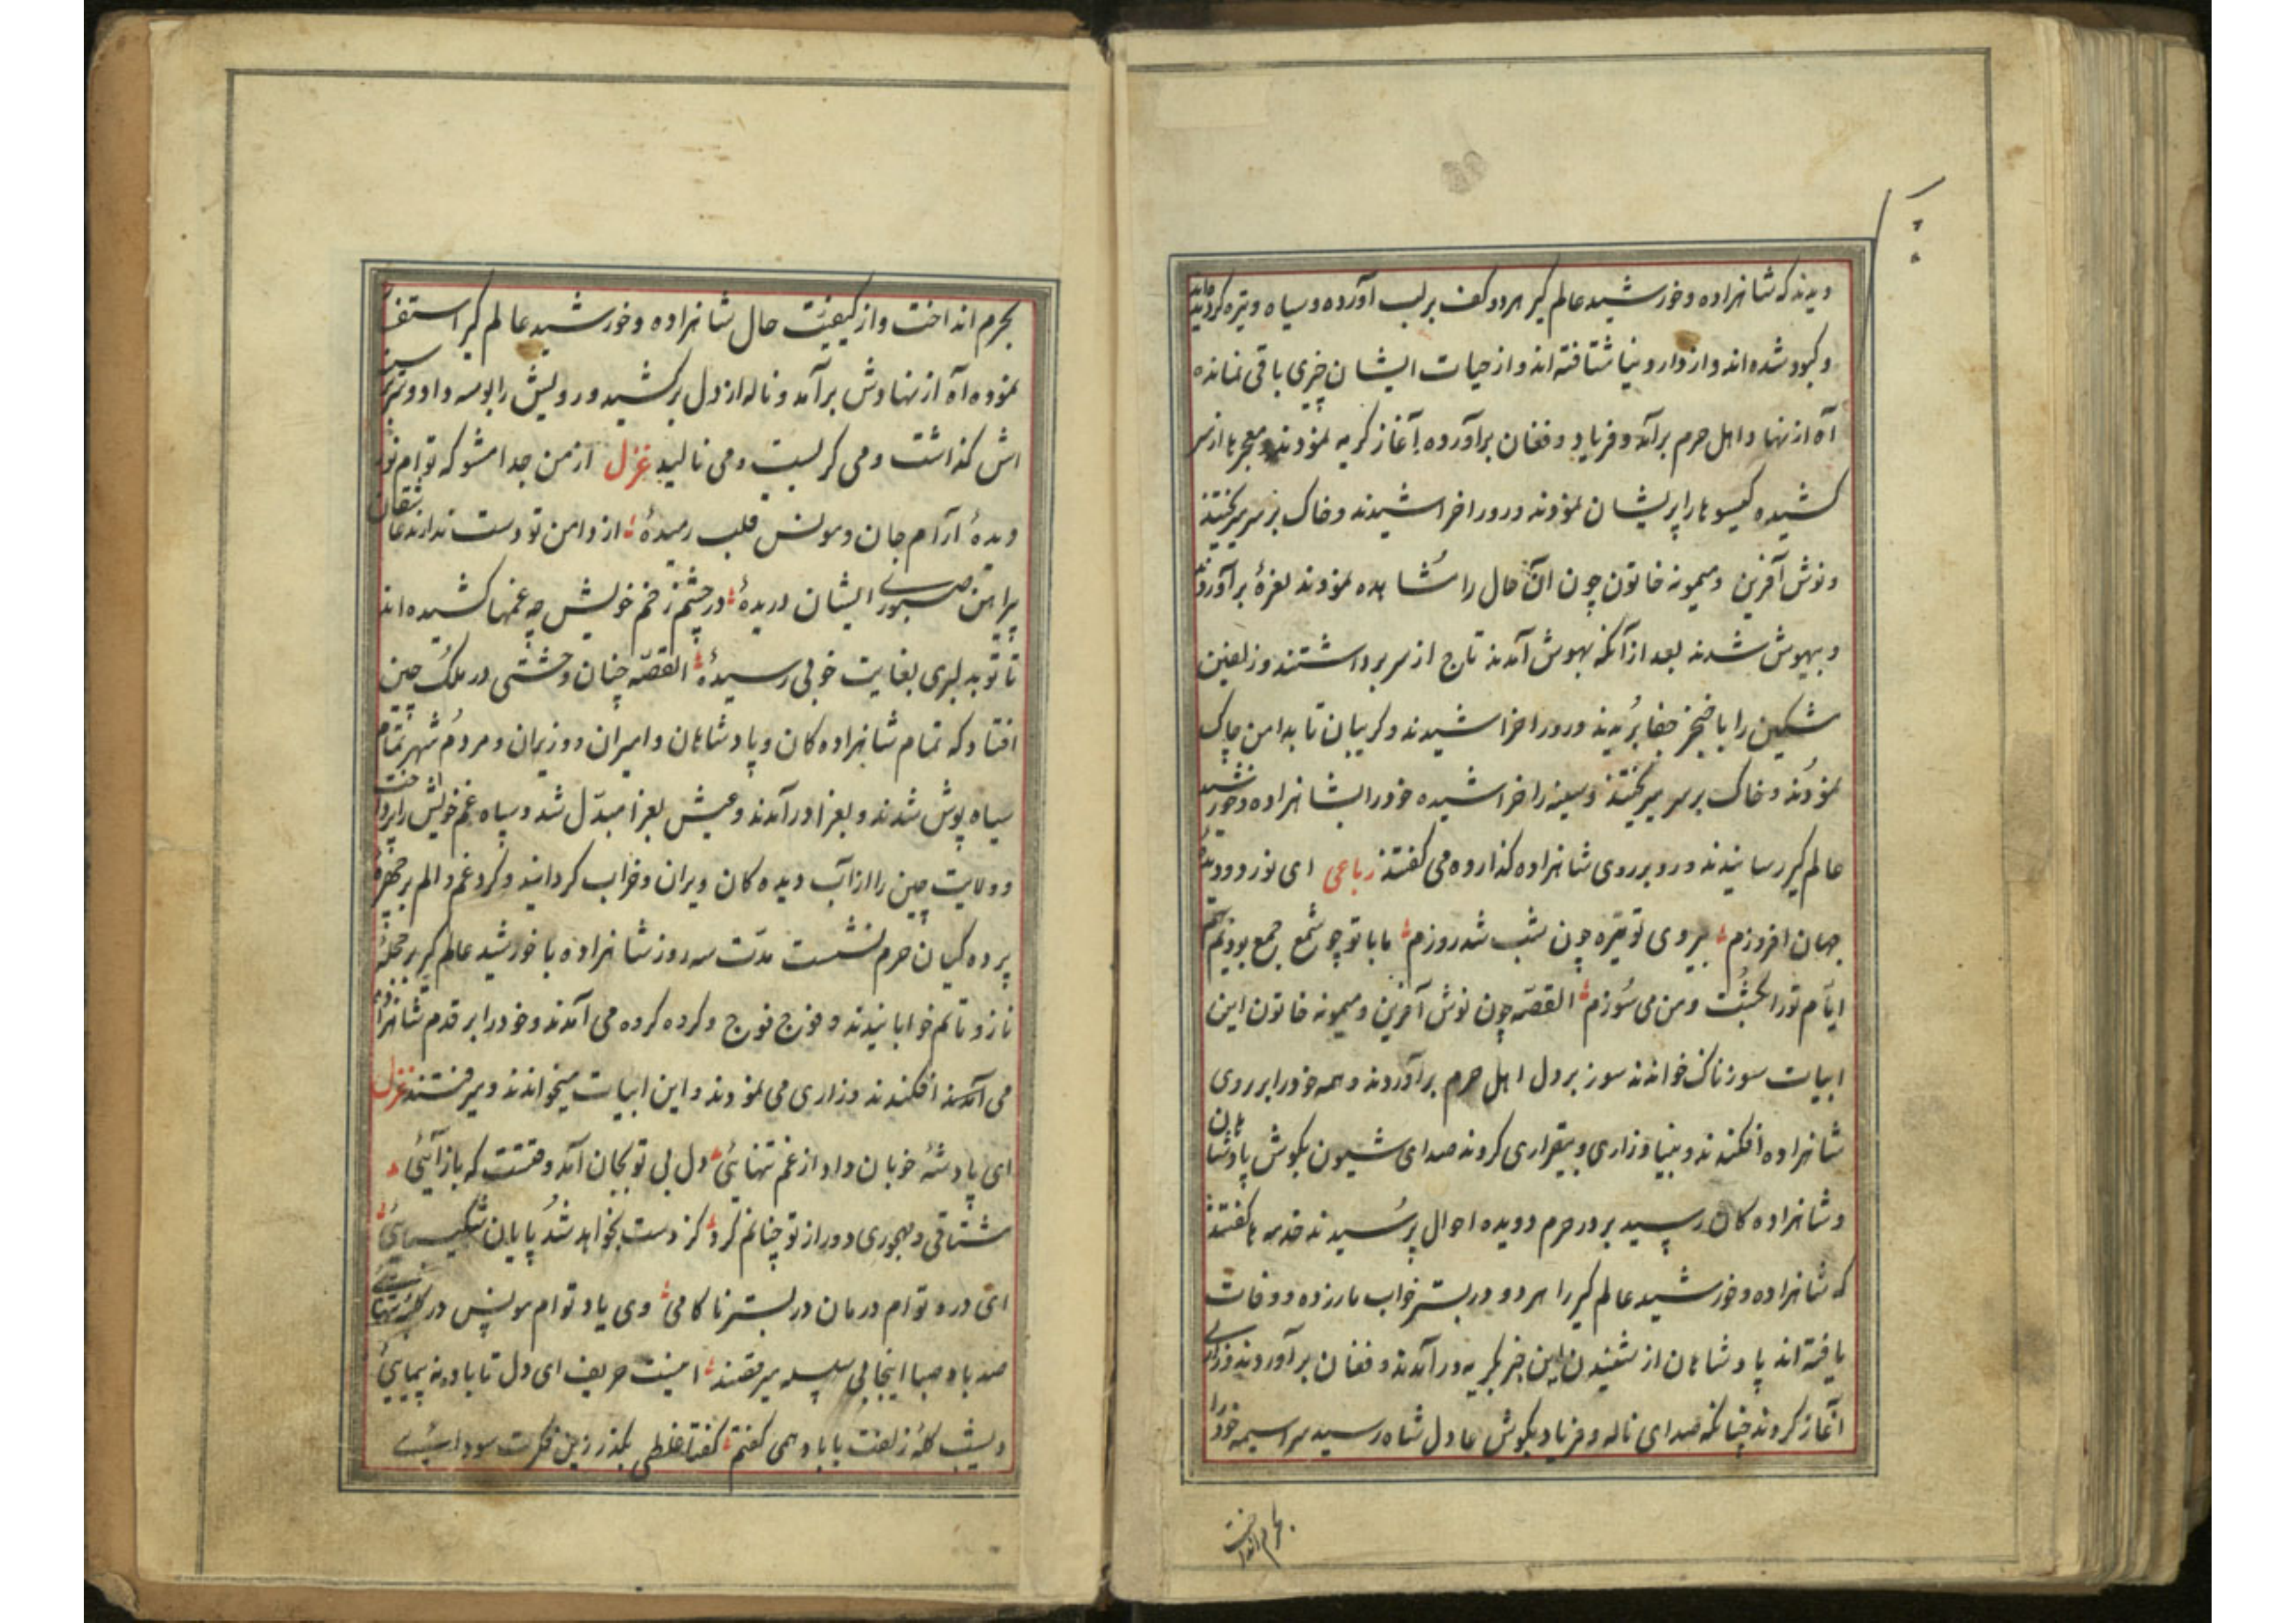 دیدند که شاهزاده و خورشید عالم گیر هردو کف بر لب آورده و سیاه و تیره گردیده
و کبود شده اند و از دار دنیا شتافته اند و از حیات ایشان چیزی باقی نمانده
آه از نهاد اهل حرم برآمد و فریاد و فغان برآورده آغاز گریه نمودند و معجرها از سر
کشیده گیسوها را پریشان نمودند و رو را خراشیدند و خاک بر سر میریختند
و نوش آفرین و میمونه خاتون چون آن حال را مشاهده نمودند نعره برآوردند
و بیهوش شدند بعد از آنکه بهوش آمدند تاج از سر برداشتند و زلفین
مشکین را با خنجر جفا بریدند و رو را خراشیدند و گریبان تا بدامن چاک
نمودند و خاک بر سر میریختند و سینه را خراشیده خود را بشاهزاده و خورشید
عالم گیر رسانیدند و رو بر روی شاهزاده گذارده می گفتند رباعی ای نور دو دیده
جهان افروزم بی روی تو تیره چون شب شد روزم ما با تو چو شمع جمع بودیم
ایام تو را بکشت و من می سوزم القصه چون نوش آفرین و میمونه خاتون این
ابیات سوزناک خواندند سوز بر دل اهل حرم برآوردند و همه خود را بر روی
شاهزاده افکندند و بنیاد زاری و بیقراری کردند صدای شیون بگوش پادشاهان
و شاهزاده کان رسید بر در حرم دویده احوال پرسیدند خدمه ها گفتند
که شاهزاده و خورشید عالم گیر را هردو در بستر خواب مار زده و وفات
یافته اند پادشاهان از شنیدن این خبر بگریه درآمدند و فغان برآوردند و زاری
آغاز کردند چنانکه صدای ناله و فریاد بگوش عادل شاه رسید سراسیمه خود را
بحرم انداخت
بحرم انداخت و از کیفیت حال شاهزاده و خورشید عالم گیر استفسار
نموده آه از نهادش برآمد و ناله از دل برکشید و رویش را بوسه داد و سر بر سینه
اش گذاشت و می گریست و می نالید غزل از من جدا مشو که توام نور
دیدهٔ آرام جان و مونس قلب رمیدهٔ از دامن تو دست ندارند عاشقان
پیراهن صبوری ایشان دریدهٔ در چشم زخم خویش چه غمها کشیده اند
تا تو بدلبری بغایت خوبی رسیدهٔ القصه چنان وحشتی در ملک چین
افتاد که تمام شاهزاده کان و پادشاهان و امیران و وزیران و مردم شهر تمام
سیاه پوش شدند و بعزا درآمدند و عیش بعزا مبدّل شد و سپاه غم خویش را برداشت
و ولایت چین را از آب دیده کان ویران و خراب گردانید و گرد غم و الم بر چهرهٔ
پرده گیان حرم نشست مدّت سه روز شاهزاده با خورشید عالم گیر بر حجلهٔ
ناز و ماتم خوابانیدند و فوج فوج و گرده گرده می آمدند و خود را بر قدم شاهزاده
می افکندند و زاری می نمودند و این ابیات میخواندند و میرفتند غزل
ای پادشه خوبان داد از غم تنهائی دل بی تو بجان آمد وقتست که باز آئی
مشتاقی و مهجوری دور از تو چنانم کرد کز دست بخواهد شد پایان شکیبائی
ای درد توام درمان در بستر ناکامی وی یاد توام مونس در گوشه تنهائی
صد باد صبا اینجا بی سلسله میرقصند اینست حریف ای دل تا باد نه پیمایی
دیشب گلهٔ زلفت با باد همی گفتم گفتا غلطی بگذر زین فکرت سودائی